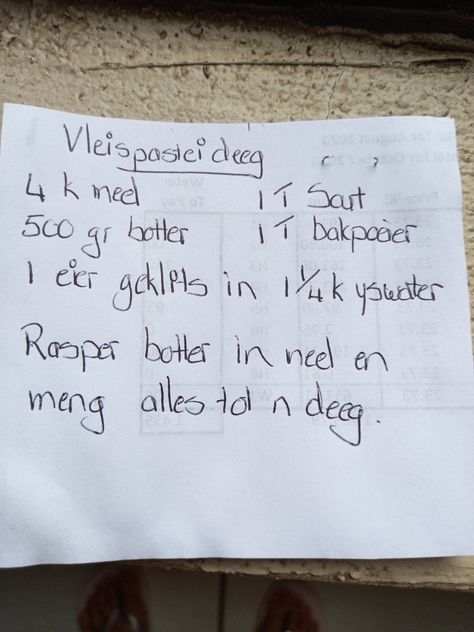 Vleispastei deeg
4 k meel 1 T Sout
500 gr botter 1 T bakpoeier
1 eier geklits in 1 1/4 k yswater
Rasper botter in meel en
meng alles tot n deeg.